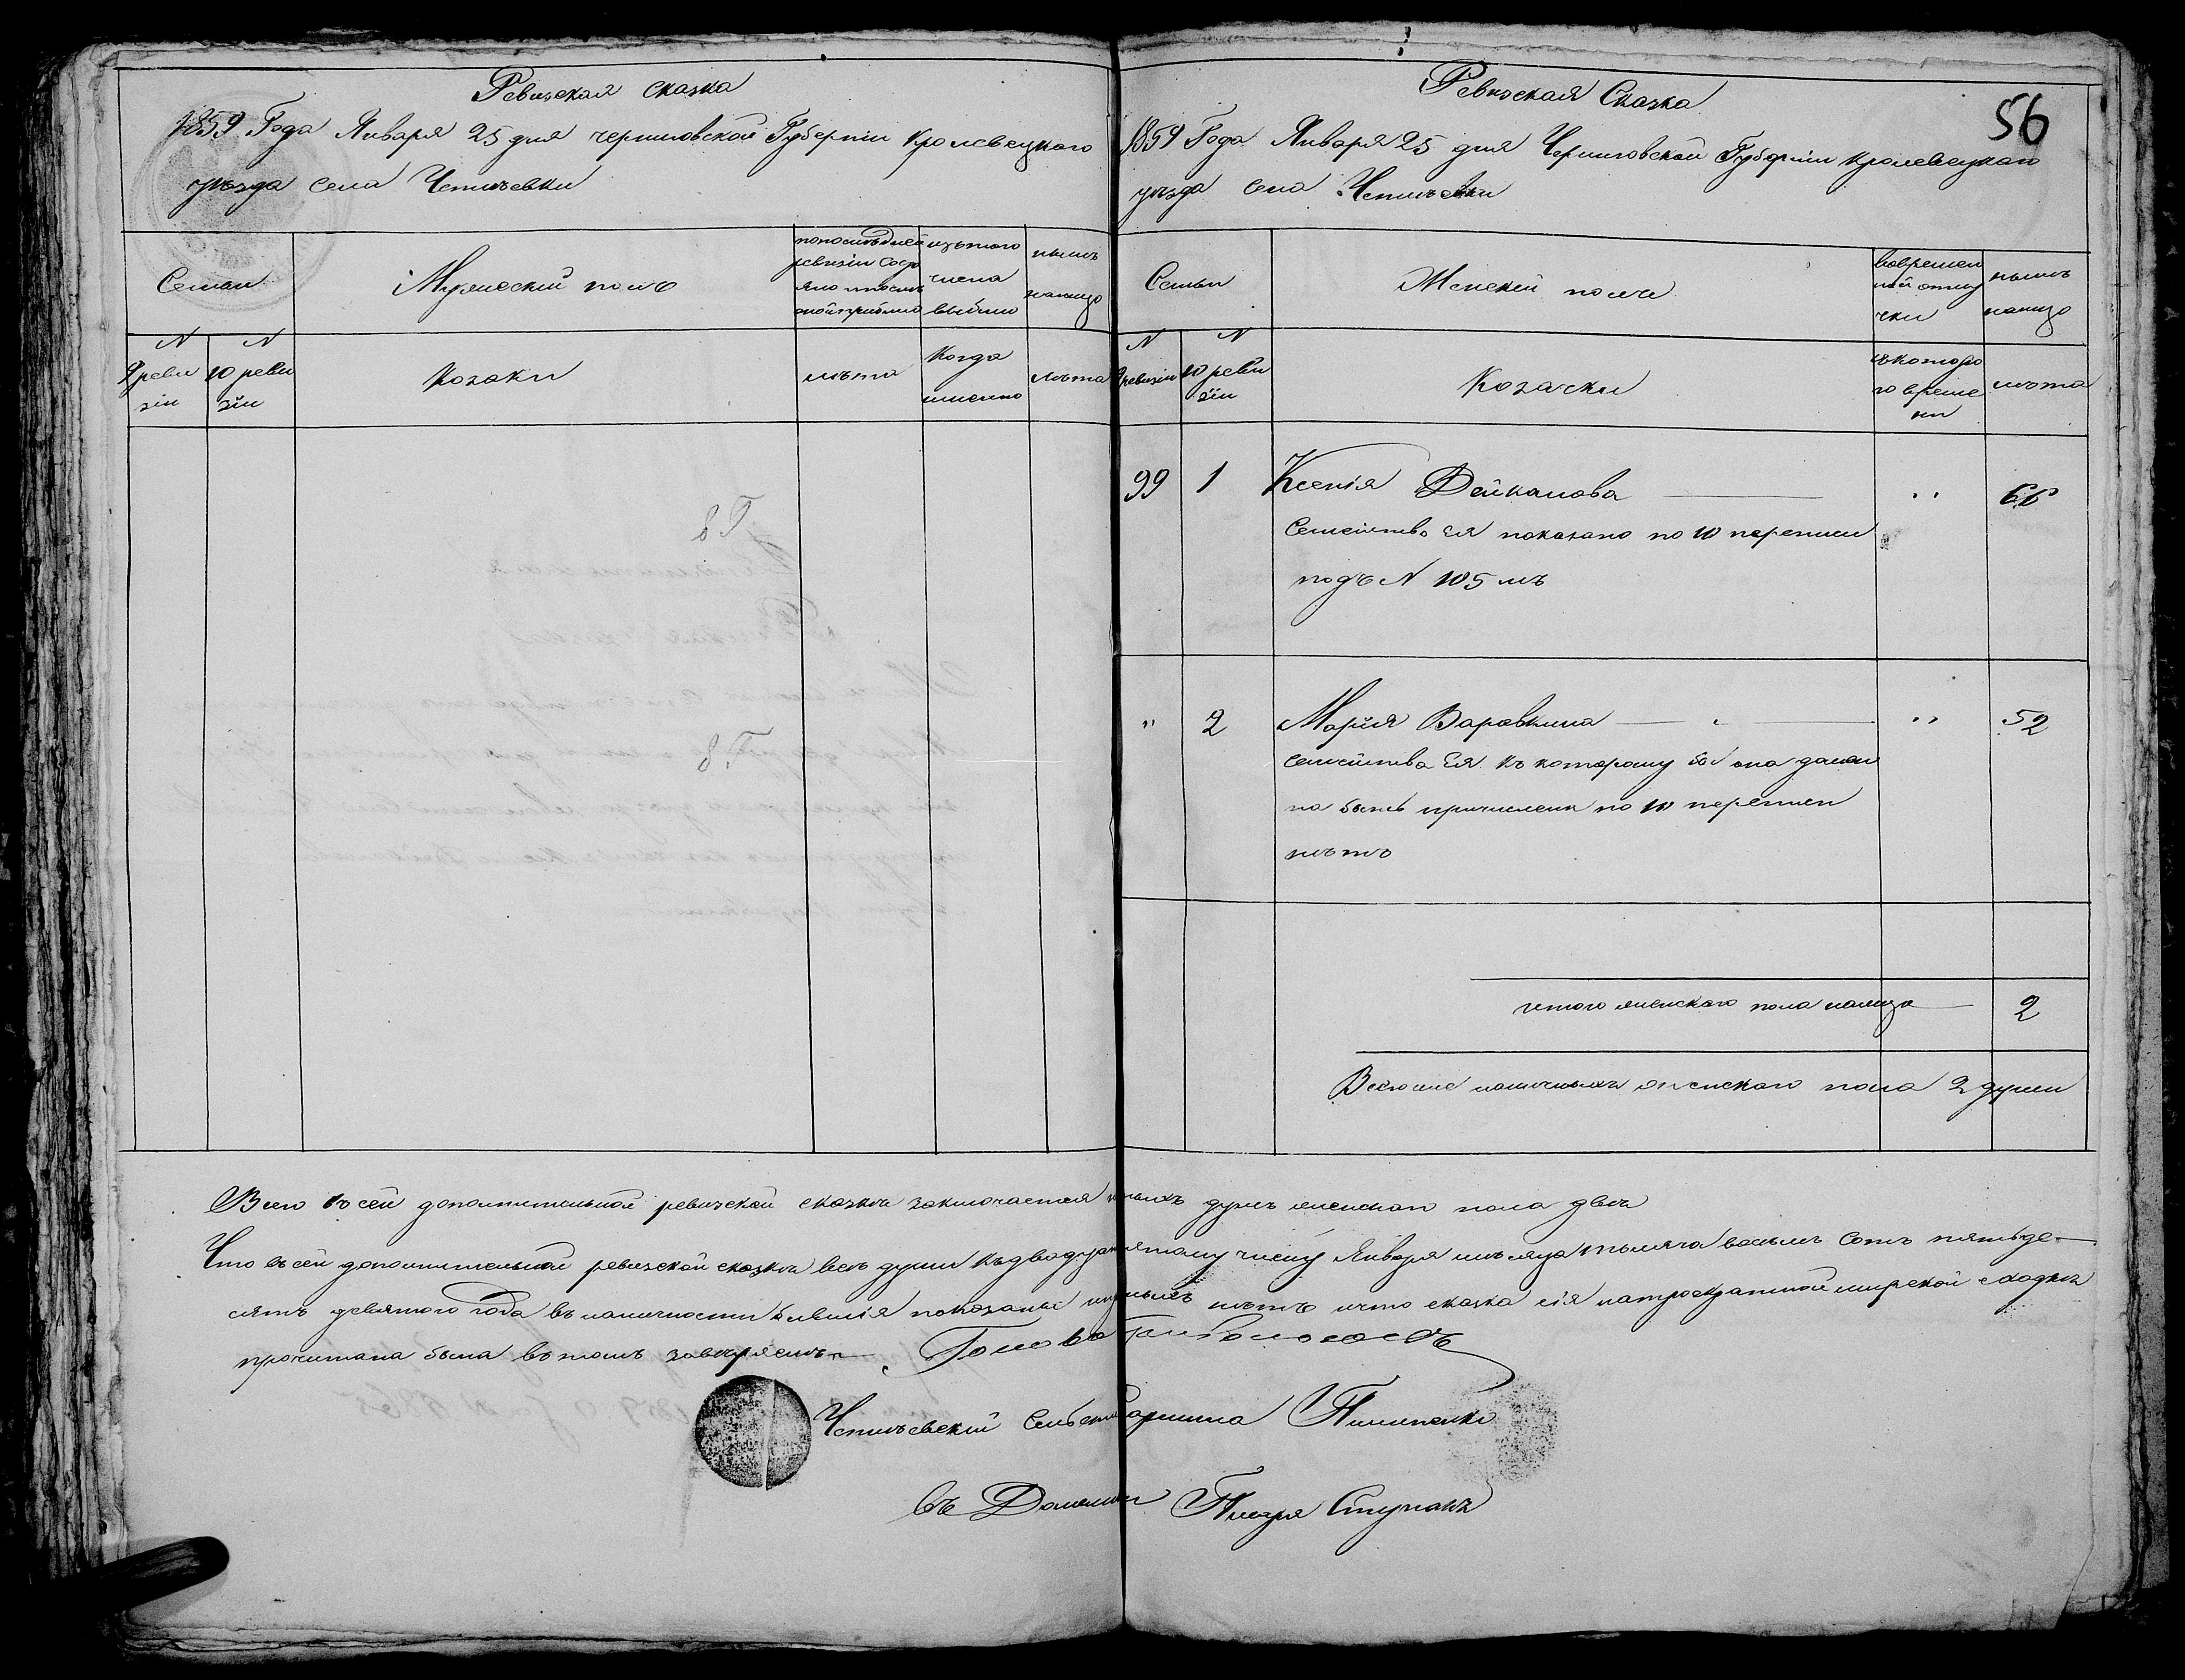 Ревизская сказка
1859 Года Января 25 дня черниговской Губернии Кролевецкого
уезда села Чепиъевки
Семьи
Мужеский полъ
по последней
ревизіи состо
яло и после
оной прибыло
изъ того
числа
выбыло
ныне
налицо
N
9 реви
зіи
N
10 реви
зіи
Козаки
лѣта
Когда
именно
лѣта
Ревизская Сказка
56
1859 Года Января 25 дня Черниговской Губерніи Кролевецкого
уезда села Чепиъевки
Семьи
Женскій полъ
вовремен
ной отлу
чки
нынѣ
налицо
N
9 ревизіи
N
10 реви
зіи
Козачки
съ которо
го време
ни
лѣта
99 1 Ксенія Дейкалова — " 66
Семейство Ея показано по 10 переписи
подъ N 105 мъ
" 2 Марія Варавкина — " 52
семейства Ея къ которому бы она долж
на быть причислена по 10 переписи
нѣтъ
итого женского пола налицо — 2
Всего же наличныхъ женского пола 2 души
Всего въ сей дополнительной ревизской сказкѣ заключается душъ женского пола двѣ
Что въ сей дополнительной ревизской сказкѣ всѣ души къ двадцать пятому числу Января мѣсяца тысяча восемь Сотъ пятьде-
сятъ девятого года въ наличности бывшія показаны нѣтъ и что сказка сія на троекратной мирской сходкѣ
прочитана была въ томъ завѣряемъ — Голова
Чепиъевскій Сельскій Старшина Пилипенко
въ Должности Писаря Ступакъ